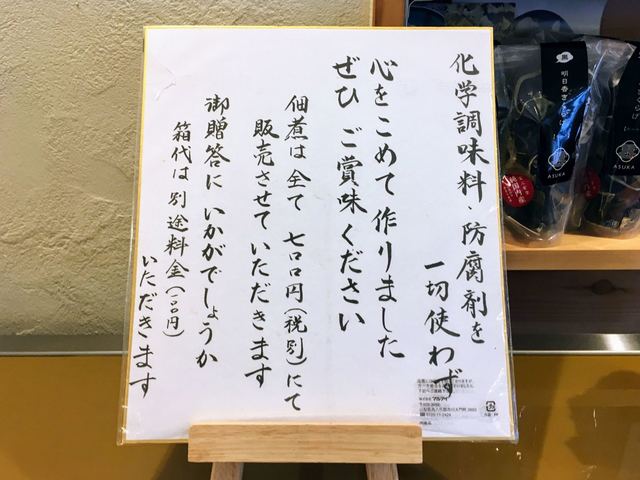 化学調味料・防腐剤を
一切使わず
心をこめて作りました
ぜひ ご賞味ください
佃煮は全て 七〇〇円(税別)にて
販売させていただきます
御贈答に いかがでしょうか
箱代は別途料金(一〇〇円)
いただきます
株式会社 マルアイ
明日香
ASUKA
純国内産